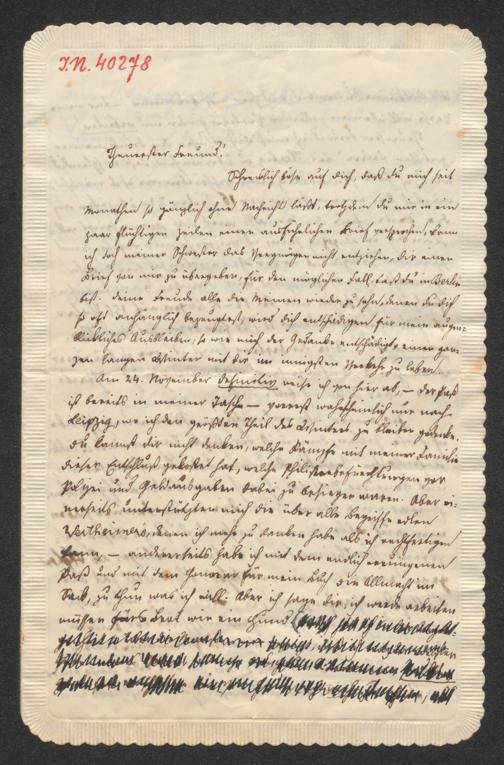 I.N. 40278
Theuerster Freund!
Schrecklich böse auf dich, daß du mich seit
Monathen so gänzlich ohne Nachricht läßt, trotzdem du mir in ein
paar flüchtigen Zeilen einen ausführlichen Brief versprochen, kann
ich doch meiner Schwester das Vergnügen nicht entziehen, dir einen
Brief von mir zu übergeben, für den möglichen Fall, daß du in Berlin
bist. Deine Freude alle die Meinen wieder zu sehn, denen du dich
so oft anhänglich bezeugtest, wird dich entschädigen für mein augen-
blickliches Ausbleiben, so wie mich der Gedanke entschädigt, einen gan-
zen langen Winter mit dir im innigsten Verkehr zu leben.
Am 24. November definitiv reise ich von hier ab, — der Paß
ist bereits in meiner Tasche — zuerst wahrscheinlich nur nach
Leipzig, wo ich den größten Theil des Winters zu bleiben gedenke.
Du kannst dir nicht denken, welche Kämpfe mit meiner Familie
dieser Entschluß gekostet hat, welche Philisterbefürchtungen vor
Polizei und Geldausgaben dabei zu besiegen waren. Aber ei-
nerseits unterstützten mich die über alle Begriffe edlen
Wertheimers, denen ich mehr zu danken habe als ich rechtfertigen
kann, — andererseits habe ich mit dem endlich errungenen
Paß und mit dem Honorar für mein Buch die Allmacht im
Sack, zu thun was ich will. Aber ich sage dir, ich werde arbeiten
müssen fürs Brot wie ein Hund